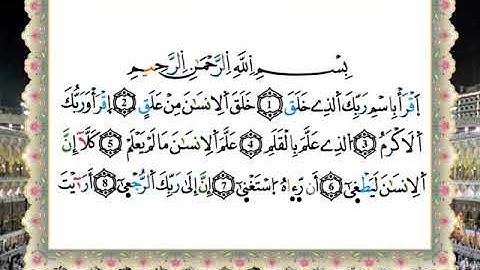 بِسْمِ اللَّهِ الرَّحْمَٰنِ الرَّحِيمِ
اِقْرَأْ بِاسْمِ رَبِّكَ الَّذِي خَلَقَ (1) خَلَقَ الْإِنسَانَ مِنْ عَلَقٍ (2) اِقْرَأْ وَرَبُّكَ
الْأَكْرَمُ (3) الَّذِي عَلَّمَ بِالْقَلَمِ (4) عَلَّمَ الْإِنسَانَ مَا لَمْ يَعْلَمْ (5) كَلَّا إِنَّ
الْإِنسَانَ لَيَطْغَىٰ (6) أَن رَّءَاهُ اسْتَغْنَىٰ (7) إِنَّ إِلَىٰ رَبِّكَ الرُّجْعَىٰ (8) أَرَءَيْتَ